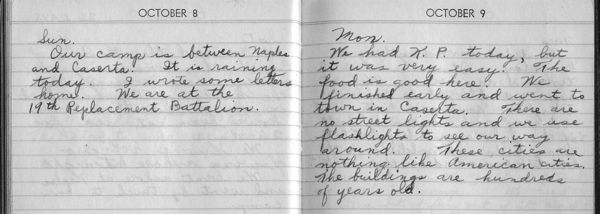 OCTOBER 8
Sun.
Our camp is between Naples
and Caserta. It is raining
today. I wrote some letters
home. We are at the
19th Replacement Battalion.
OCTOBER 9
Mon.
We had K. P. today, but
it was very easy. The
food is good here. We
finished early and went to
town in Caserta. There are
no street lights and we use
flashlights to see our way
around. These cities are
nothing like American cities.
The buildings are hundreds
of years old.